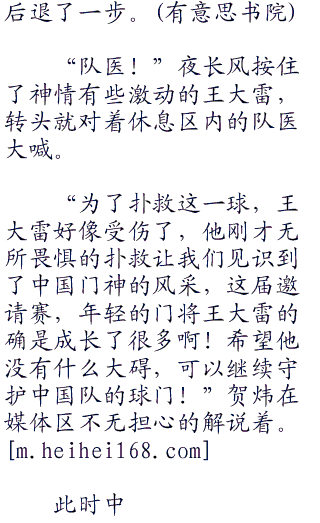 后退了一步。(有意思书院)
“队医！”夜长风按住
了神情有些激动的王大雷，
转头就对着休息区内的队医
大喊。
“为了扑救这一球，王
大雷好像受伤了，他刚才无
所畏惧的扑救让我们见识到
了中国门神的风采，这届邀
请赛，年轻的门将王大雷的
确是成长了很多啊！希望他
没有什么大碍，可以继续守
护中国队的球门！”贺炜在
媒体区不无担心的解说着。
[m.heihei168.com]
此时中